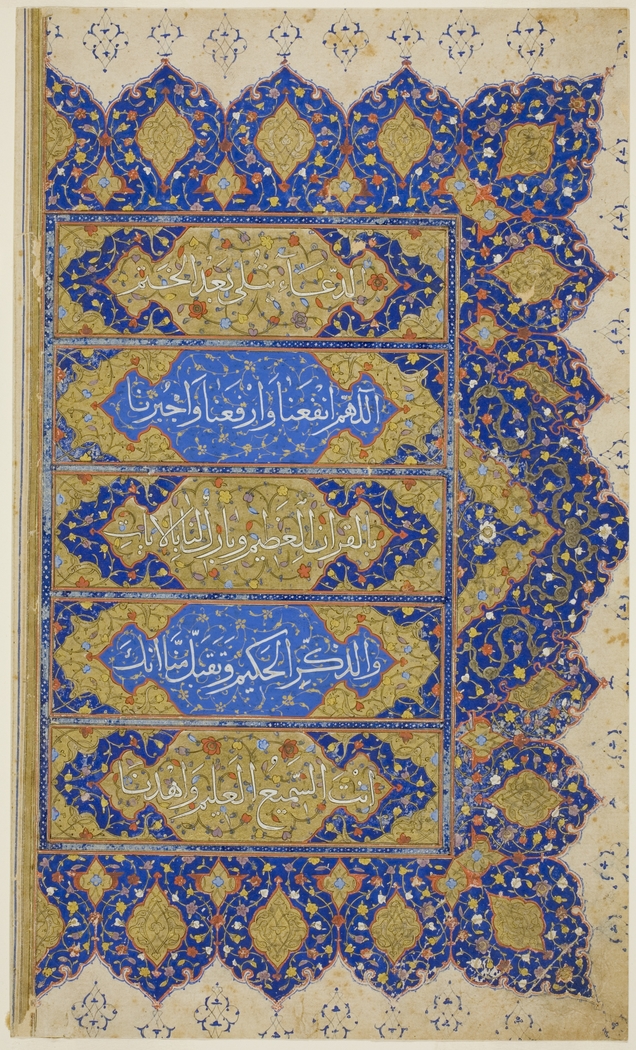 الدعاء يتلى بعد الختم
اللهم انفعنا وارفعنا واجبرنا
بالقرآن العظيم وبارك لنا بالآيات
والذكر الحكيم وتقبل منا انك
انت السميع العليم واهدنا